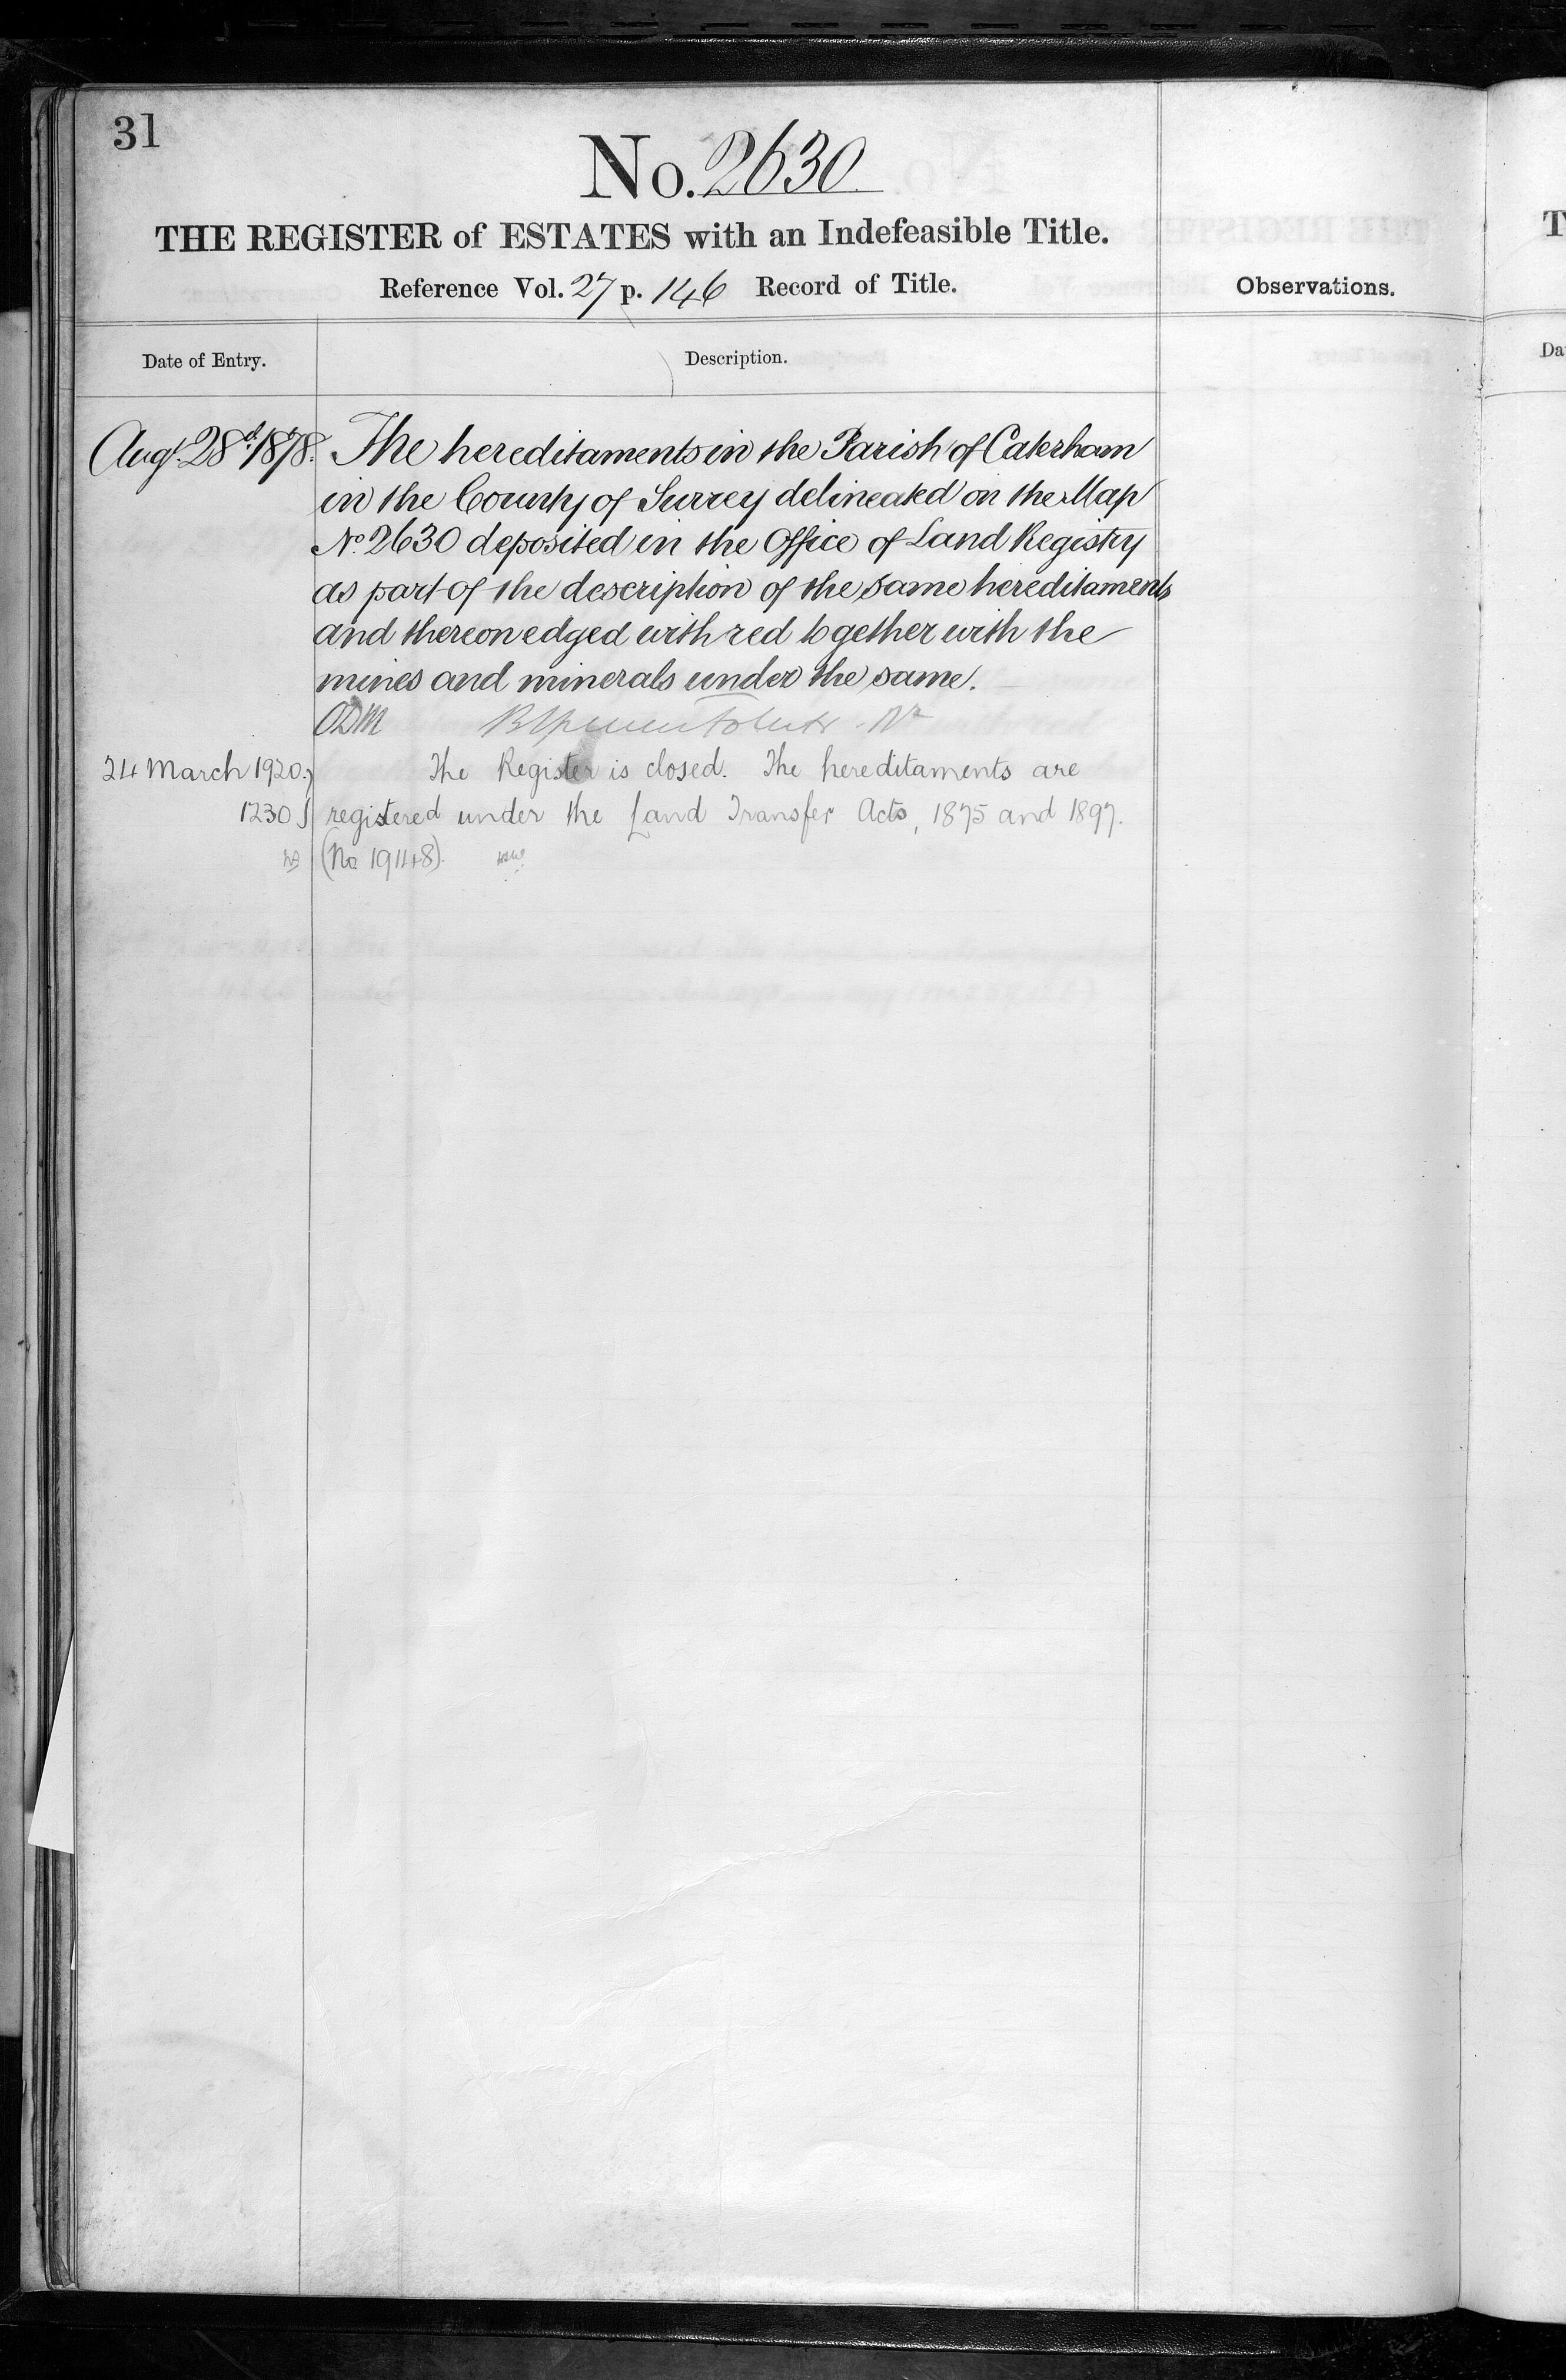 31
No. 2630
THE REGISTER of ESTATES with an Indefeasible Title.
Reference Vol. 27 p. 146 Record of Title.
Observations.
Date of Entry.
Description.
Augt. 28th 1878. The hereditaments in the Parish of Caterham
in the County of Surrey delineated on the Map
No. 2630 deposited in the Office of Land Registry
as part of the description of the same hereditaments
and thereon edged with red together with the
mines and minerals under the same.
24 March 1920. The Register is closed. The hereditaments are
1230 registered under the Land Transfer Acts, 1875 and 1897.
(No 19148).
T
Da